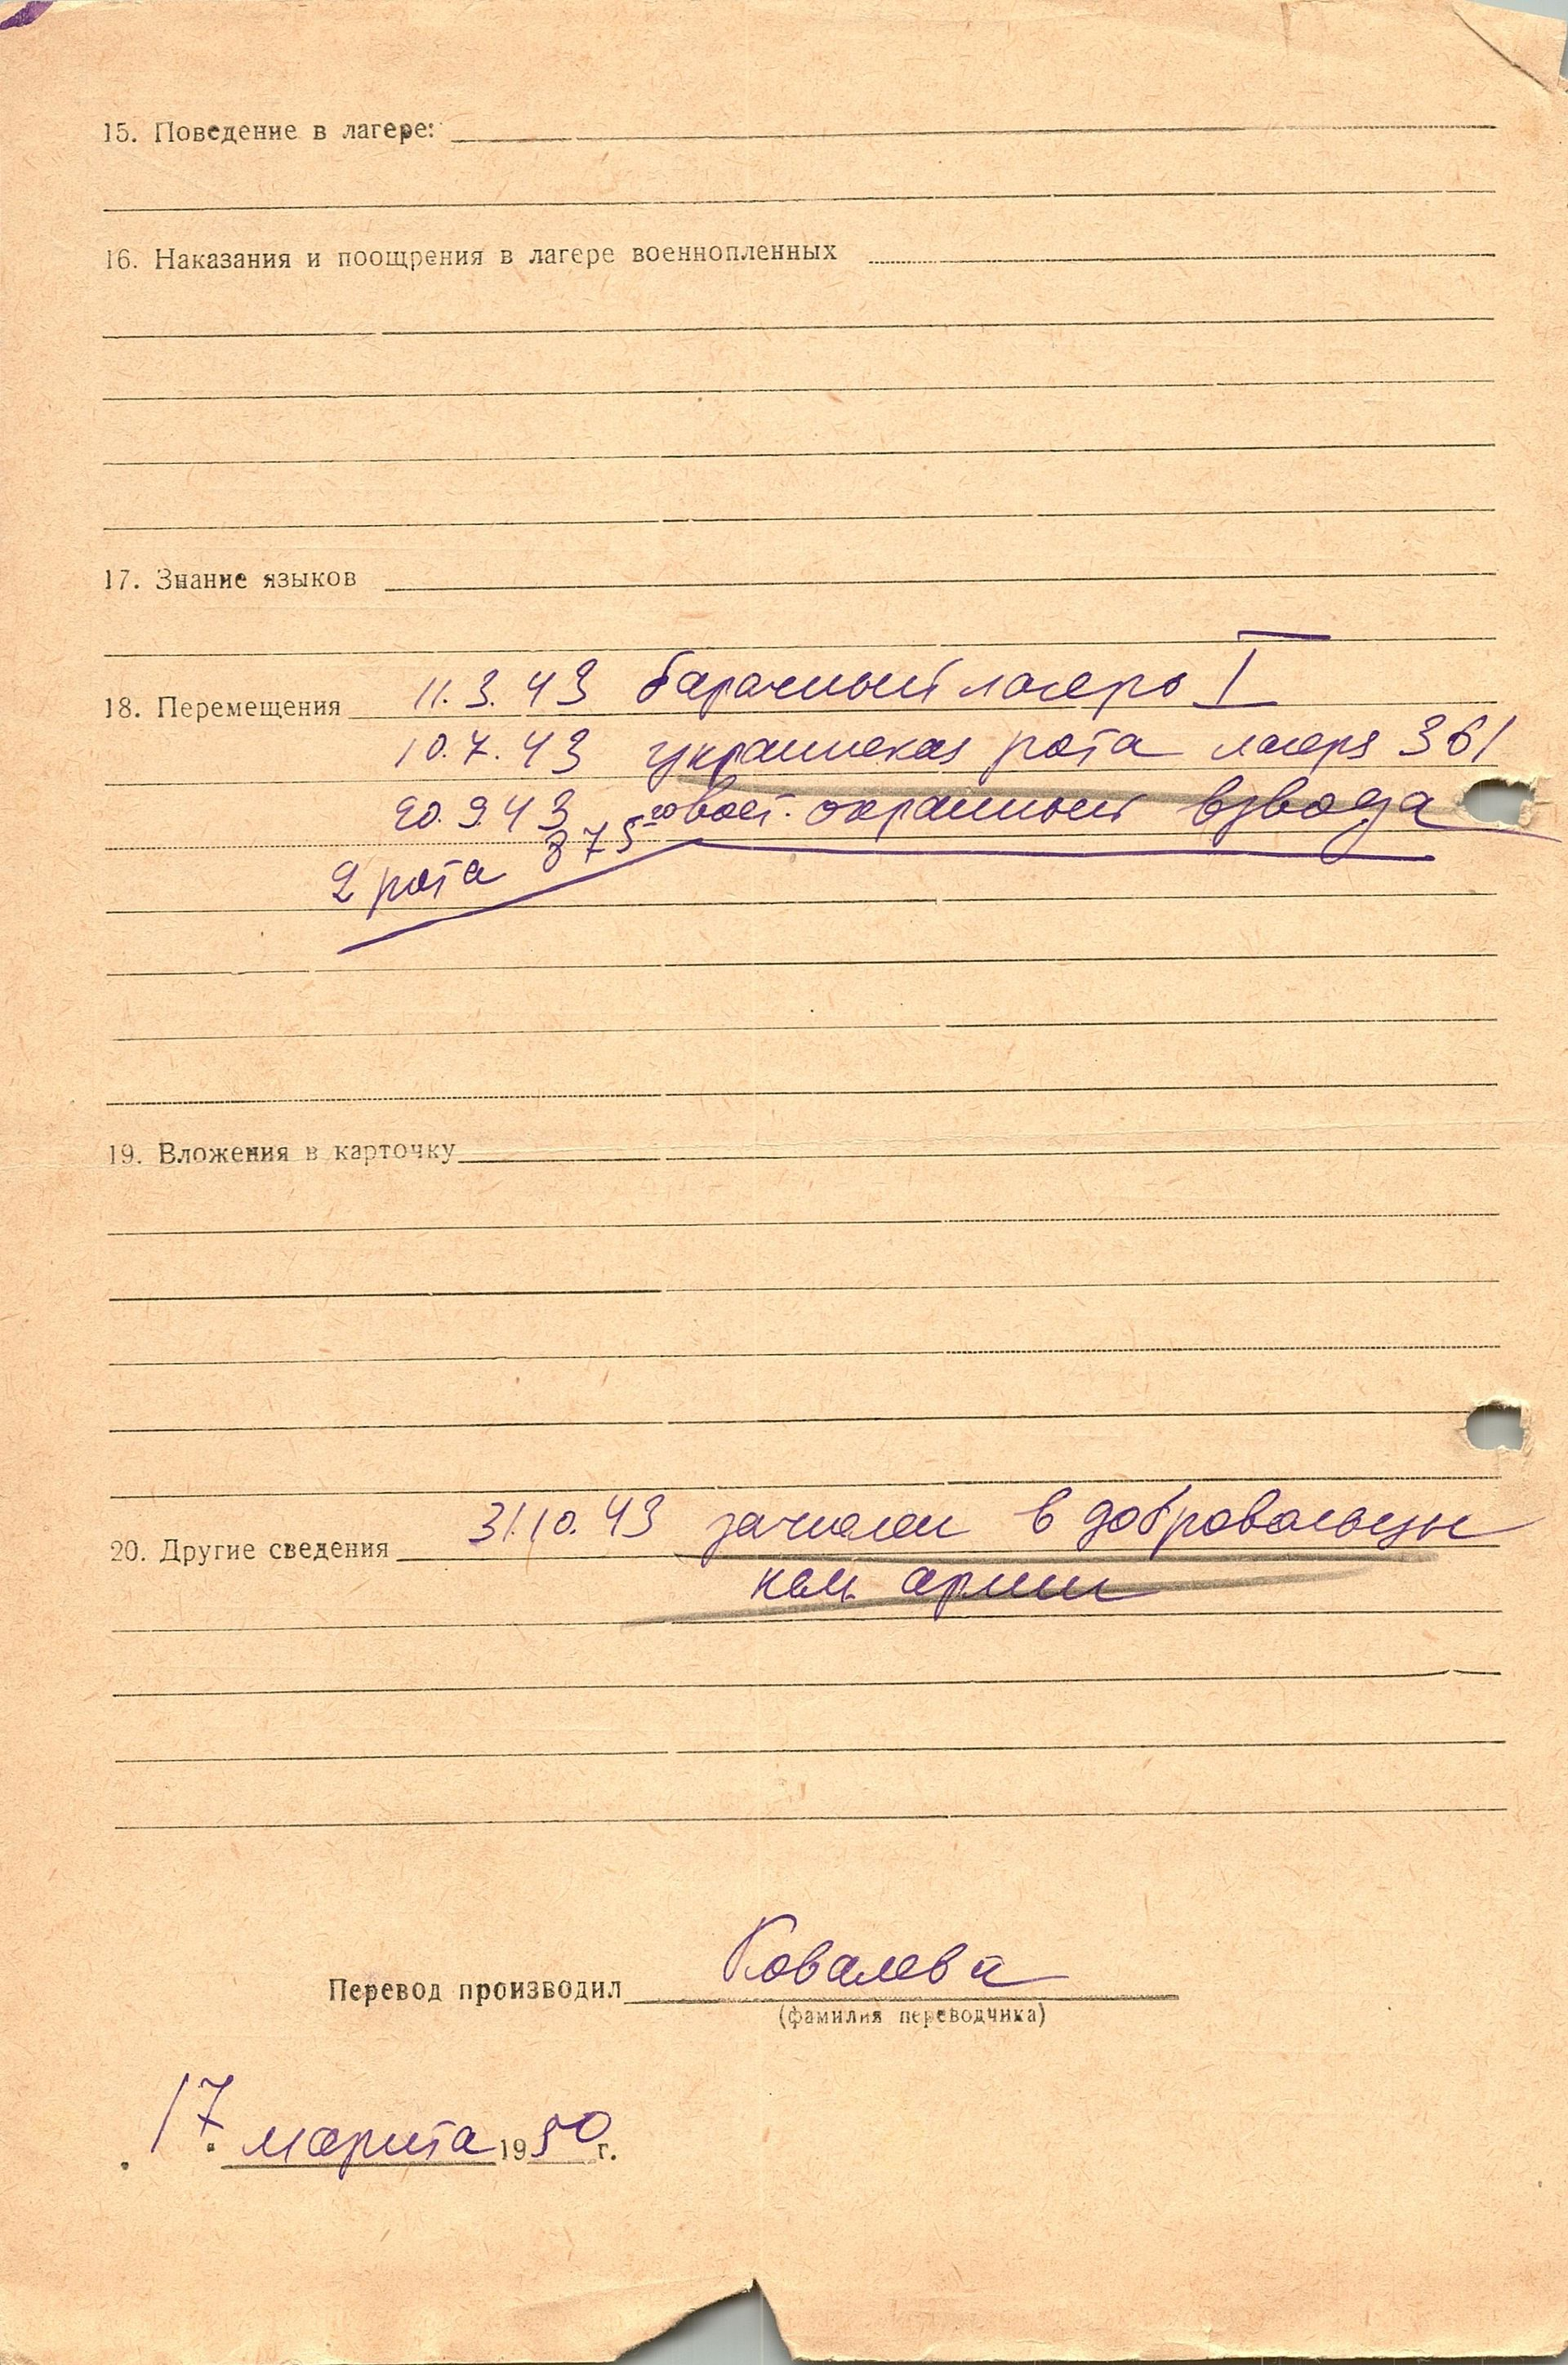 15. Поведение в лагере:
16. Наказания и поощрения в лагере военнопленных
17. Знание языков
18. Перемещения 11.3.43 барачный лагерь I
10.7.43 украинская рота лагеря 361
20.9.43 вост. охранный взвода
2 рота 375го
19. Вложения в карточку
20. Другие сведения 31.10.43 зачислен в добровольцы
нем. армии
Перевод производил Ковалева
(фамилия переводчика)
17 марта 1950 г.